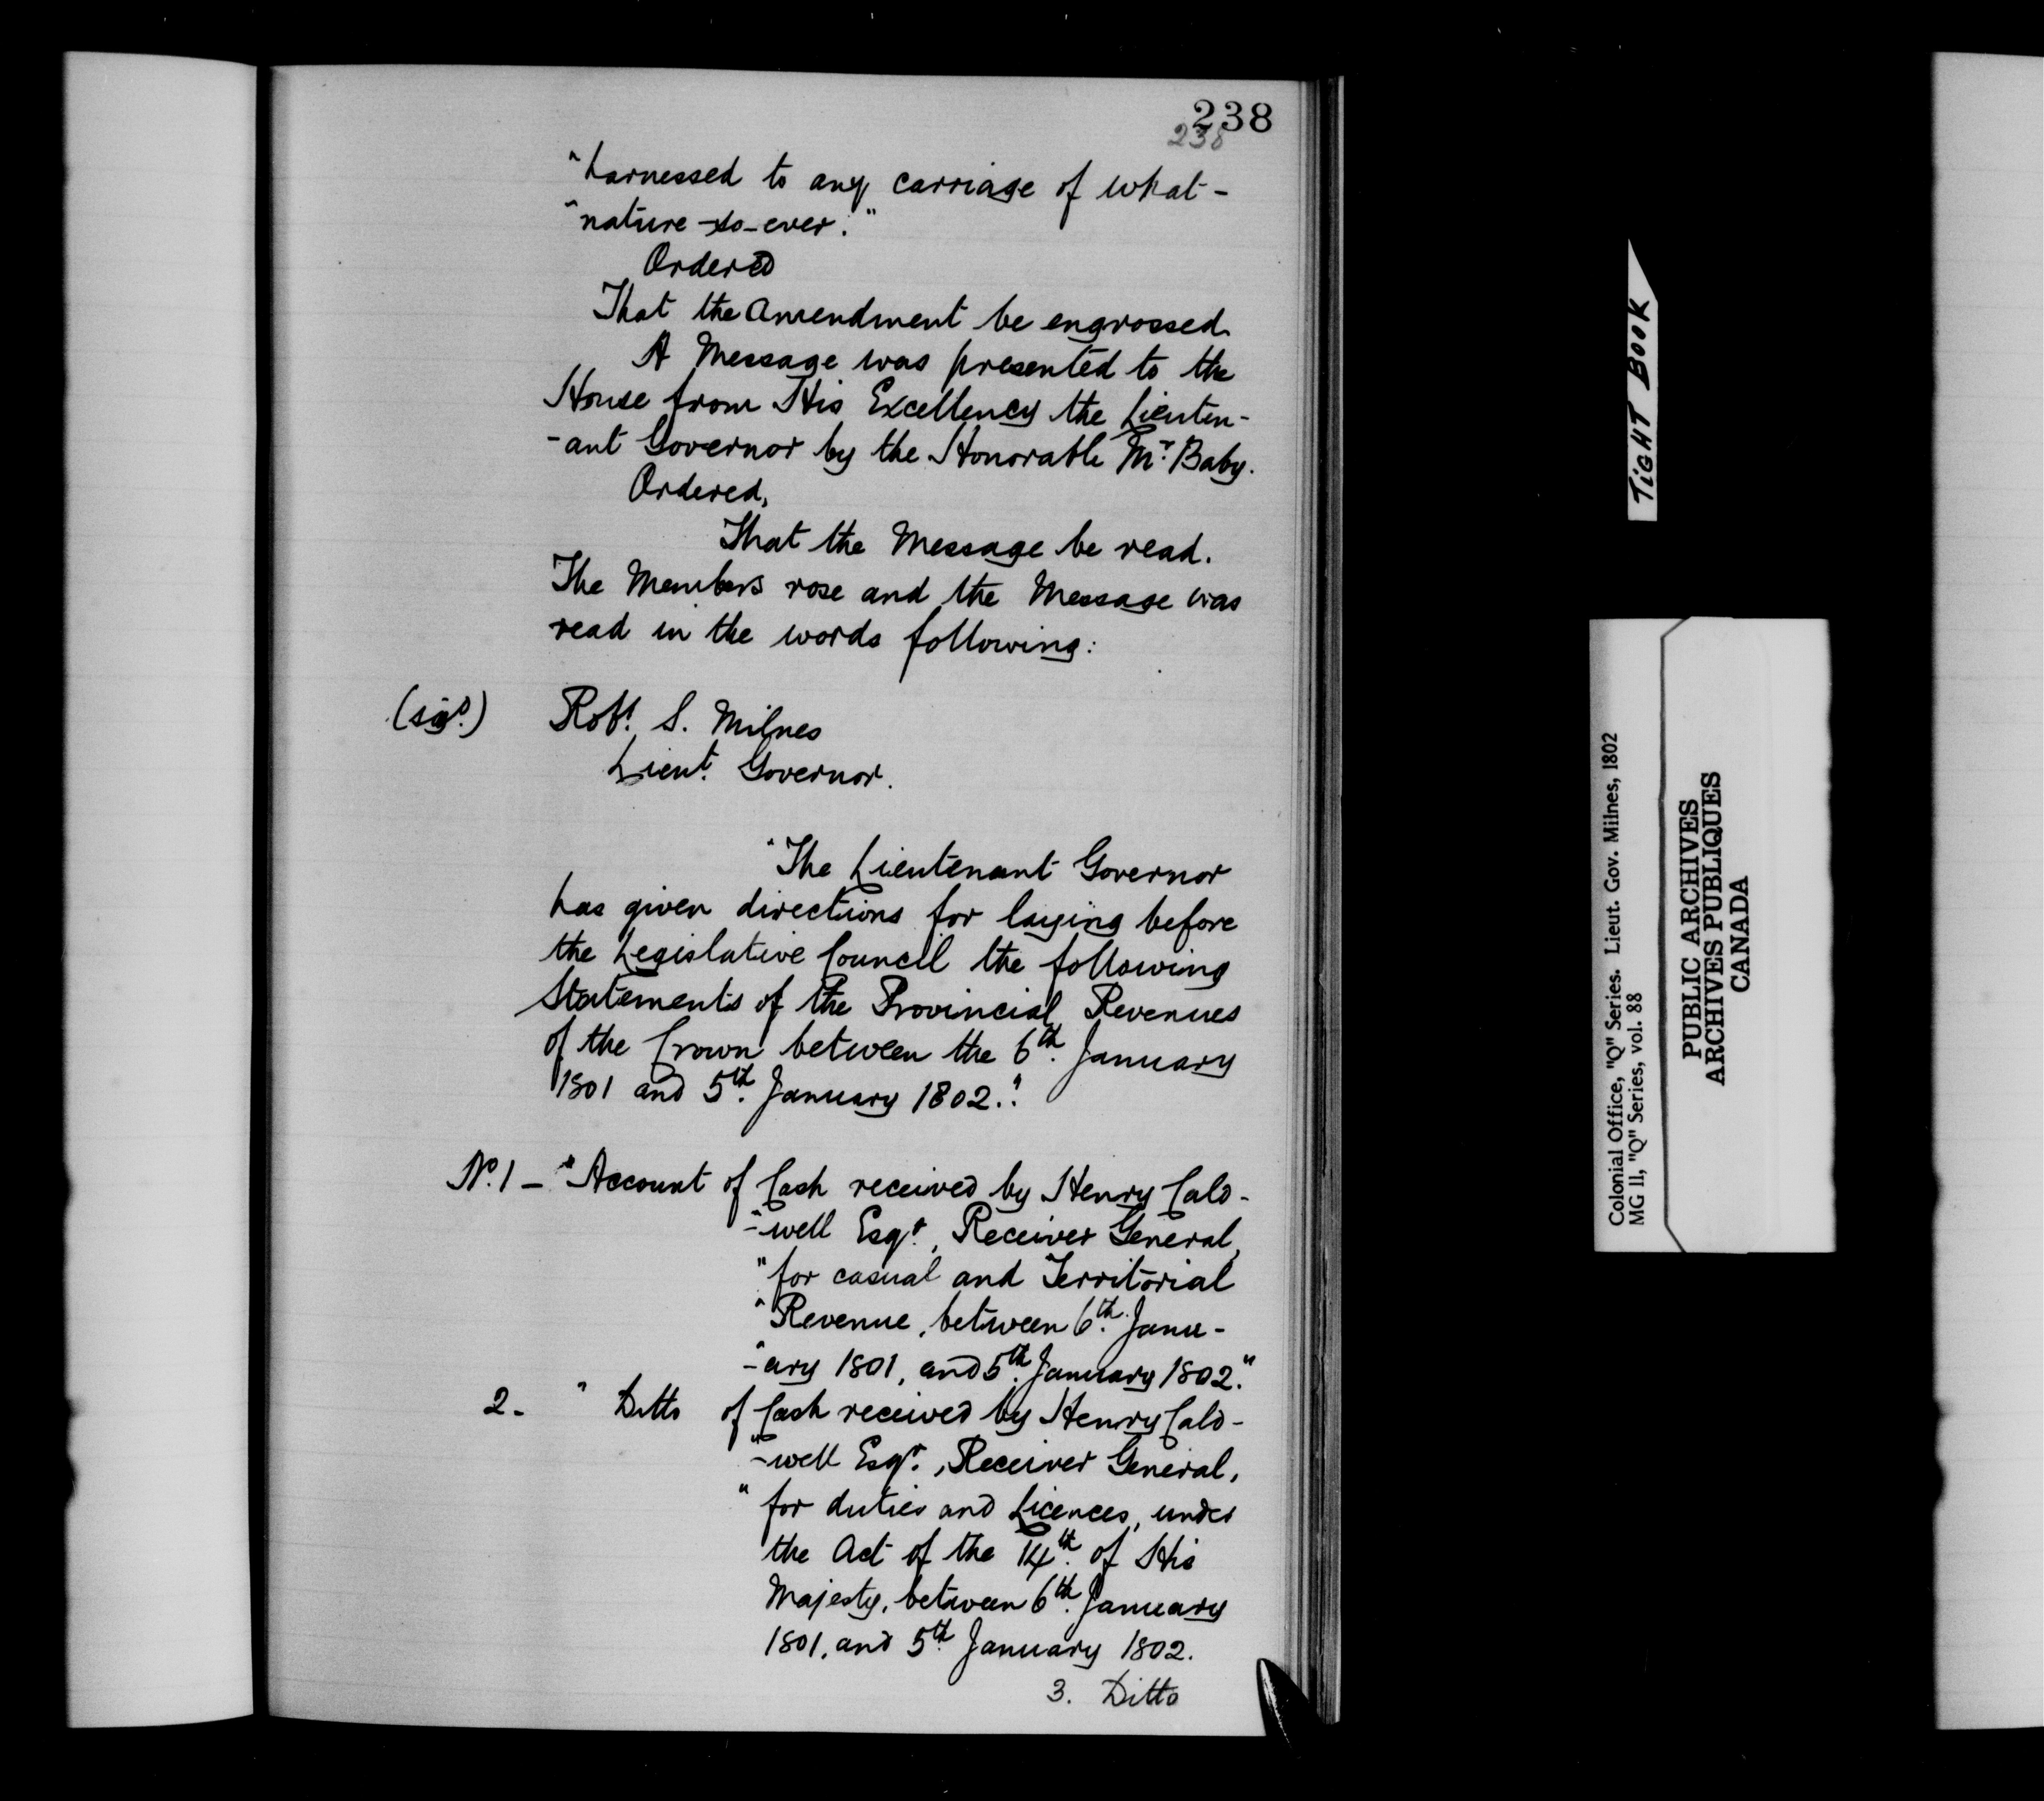 238
238
"harnessed to any carriage of what-
"nature-so-ever."
Ordered
That the Amendment be engrossed.
A Message was presented to the
House from His Excellency the Lieuten-
-ant Governor by the Honorable Mr. Baby.
Ordered,
That the Message be read.
The Members rose and the Message was
read in the words following:
(sigd.) Robt. S. Milnes
Lieut. Governor.
"The Lieutenant Governor
has given directions for laying before
the Legislative Council the following
Statements of the Provincial Revenues
of the Crown between the 6th. January
1801 and 5th. January 1802."
No. 1 - "Account of Cash received by Henry Cald-
"-well Esqr., Receiver General,
"for casual and Territorial
"Revenue, between 6th. Janu-
"-ary 1801, and 5th. January 1802."
2- " Ditto of Cash received by Henry Cald-
"-well Esqr., Receiver General,
" for duties and Licences, under
the Act of the 14th. of His
Majesty, between 6th. January
1801, and 5th January 1802.
3. Ditto
TIGHT BOOK
Colonial Office, "Q" Series. Lieut. Gov. Milnes, 1802
MG II, "Q" Series, vol. 88
PUBLIC ARCHIVES
ARCHIVES PUBLIQUES
CANADA